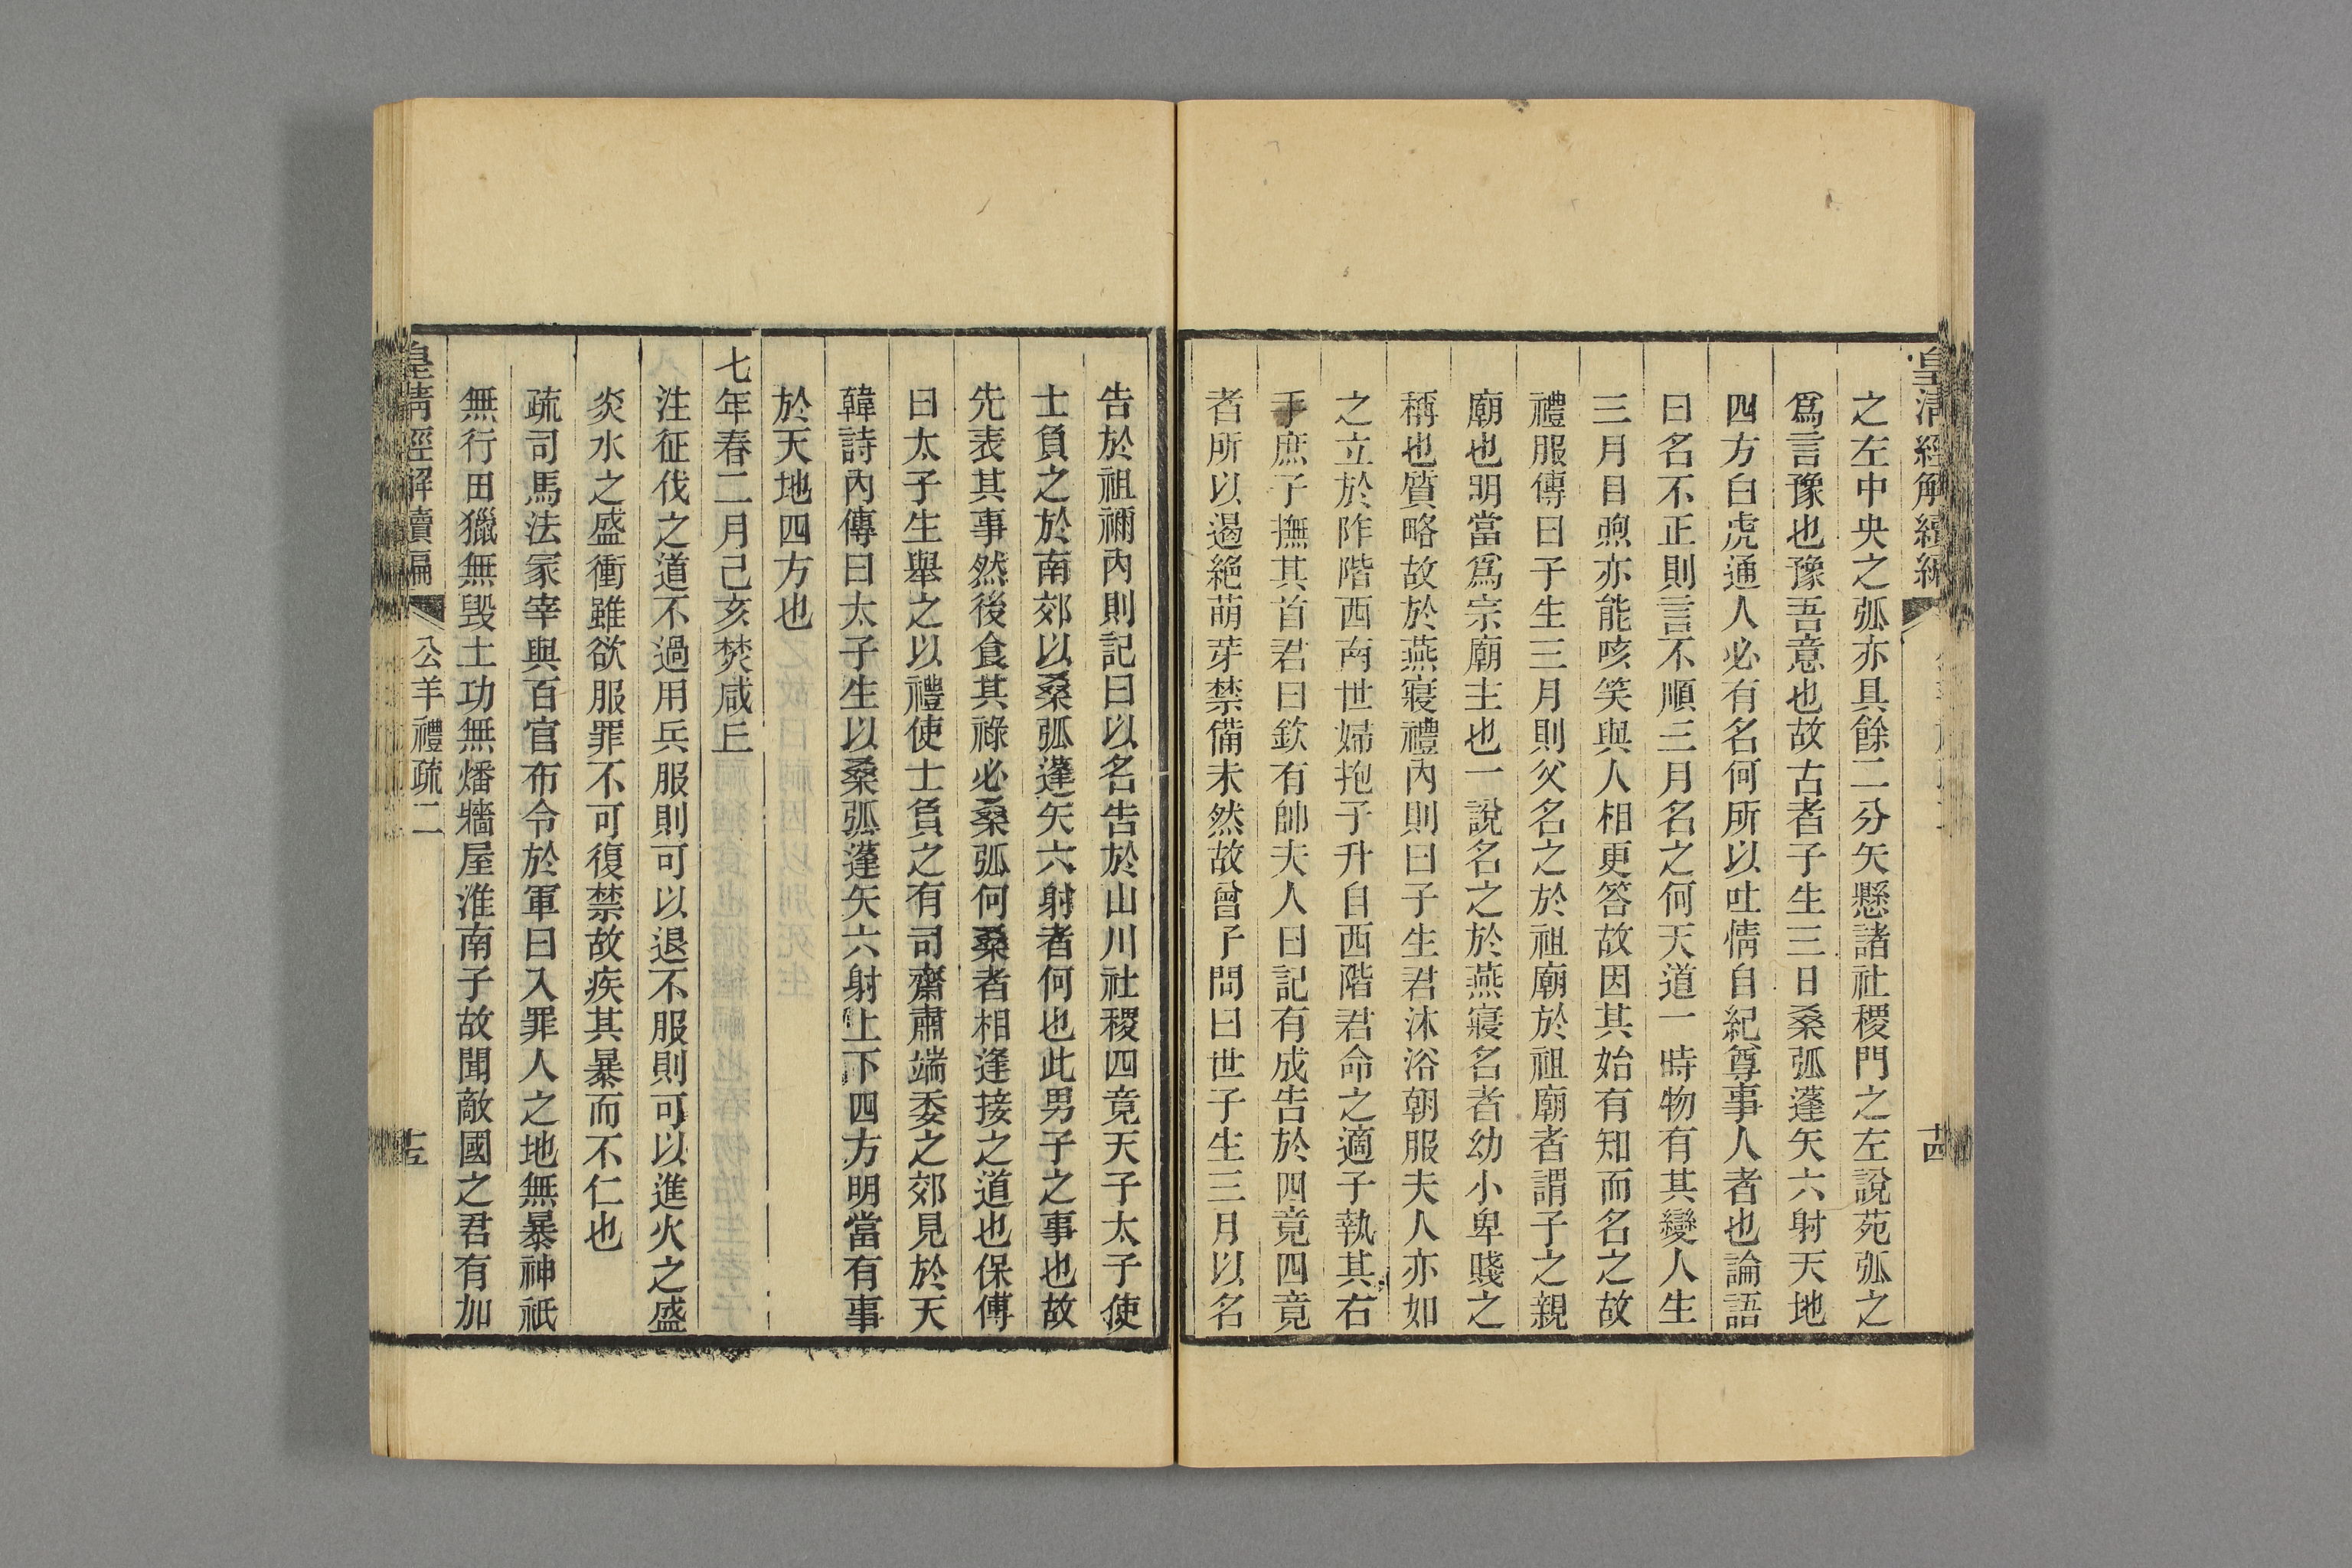 皇清經解續編
十四
之左中央之弧亦具餘二分矢懸諸社稷門之左說苑弧之
爲言豫也豫吾意也故古者子生三日桑弧蓬矢六射天地
四方白虎通人必有名何所以吐情自紀尊事人者也論語
曰名不正則言不順三月名之何天道一時物有其變人生
三月目煦亦能咳笑與人相更答故因其始有知而名之故
禮服傳曰子生三月則父名之於祖廟於祖廟者謂子之親
廟也明當爲宗廟主也一說名之於燕寢名者幼小卑賤之
稱也質略故於燕寢禮內則曰子生君沐浴朝服夫人亦如
之立於阼階西南世婦抱子升自西階君命之適子執其右
手庶子撫其首君曰欽有帥夫人曰記有成告於四竟四竟
者所以遏絶萌芽禁備未然故曾子問曰世子生三月以名
告於祖禰內則記曰以名告於山川社稷四竟天子太子使
士負之於南郊以桑弧蓬矢六射者何也此男子之事也故
先表其事然後食其祿必桑弧何桑者相逢接之道也保傅
曰太子生舉之以禮使士負之有司齋肅端委之郊見於天
韓詩內傳曰太子生以桑弧蓬矢六射上下四方明當有事
於天地四方也
七年春二月己亥焚咸丘
注征伐之道不過用兵服則可以退不服則可以進火之盛
炎水之盛衝雖欲服罪不可復禁故疾其暴而不仁也
疏司馬法冢宰與百官布令於軍曰入罪人之地無暴神祇
無行田獵無毀土功無燔牆屋淮南子故聞敵國之君有加
皇清經解續編
公羊禮疏二
十五